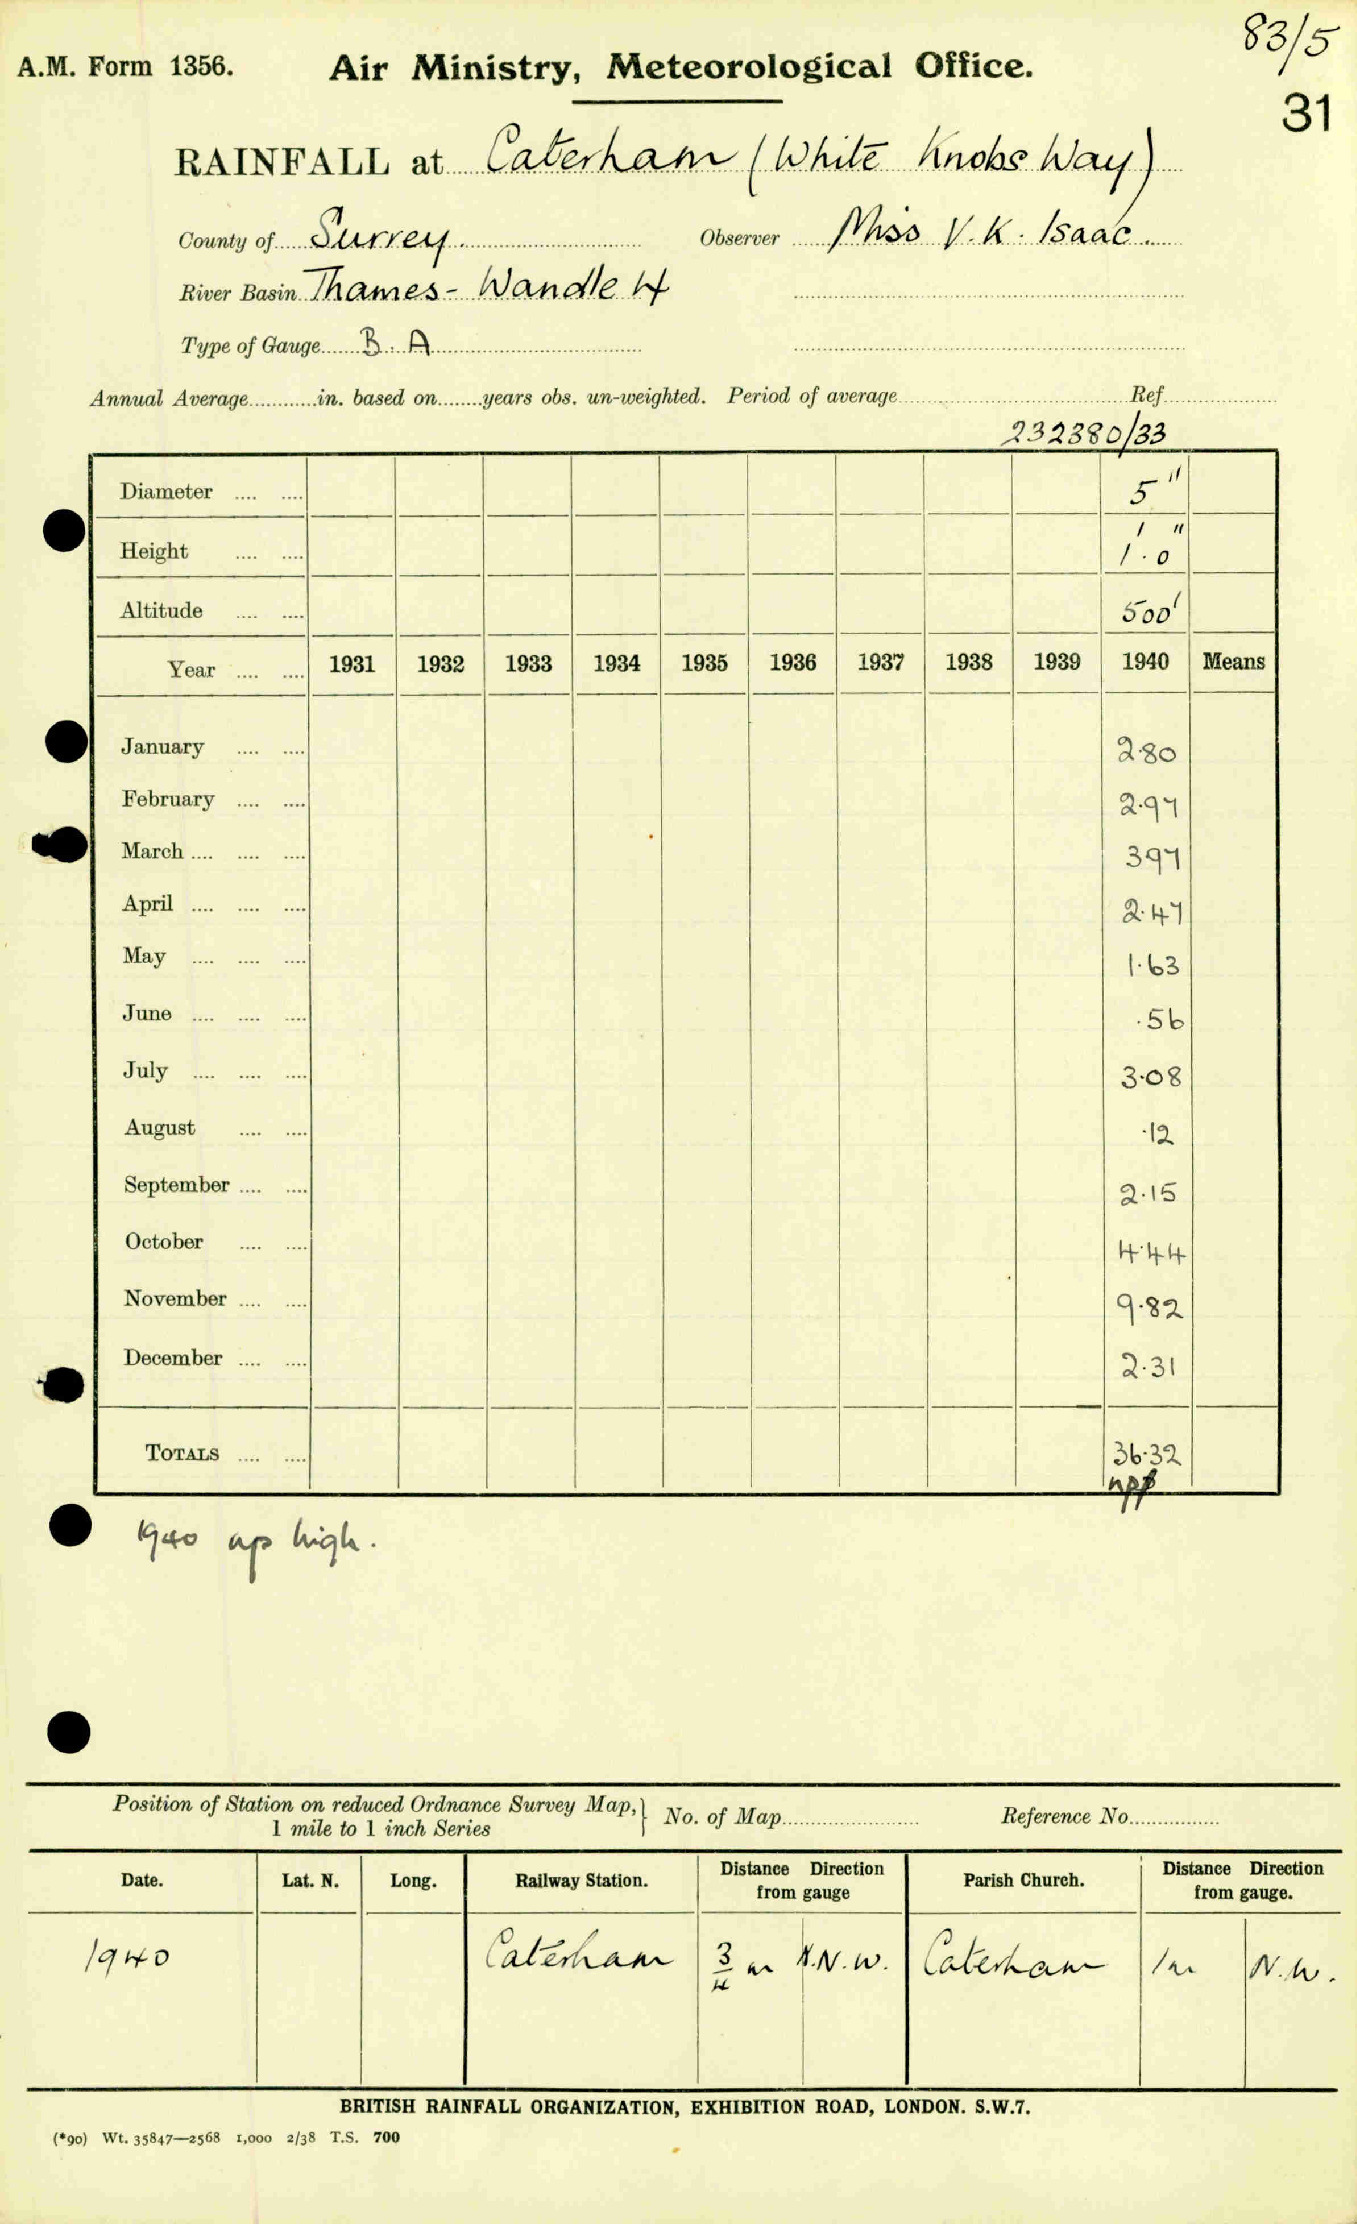 83/5
A.M. Form 1356. Air Ministry, Meteorological Office.
31
RAINFALL at Caterham (White Knobs Way)
County of Surrey. Observer Miss V. K. Isaac.
River Basin Thames - Wandle 4
Type of Gauge B. A
Annual Average in. based on years obs. un-weighted. Period of average Ref.
232380/33
Diameter .... .... 5"
Height .... .... 1' 0"
Altitude .... .... 500'
Year .... .... 1931 1932 1933 1934 1935 1936 1937 1938 1939 1940 Means
January .... .... 2.80
February .... .... 2.97
March .... .... .... 3 97
April .... .... .... 2.47
May .... .... .... 1.63
June .... .... .... .56
July .... .... .... 3.08
August .... .... .12
September .... .... 2.15
October .... .... 4.44
November .... .... 9.82
December .... .... 2.31
TOTALS .... .... 36.32
npf
1940 up high.
Position of Station on reduced Ordnance Survey Map, } No. of Map Reference No.
1 mile to 1 inch Series
Date. Lat. N. Long. Railway Station. Distance Direction from gauge Parish Church. Distance Direction from gauge.
1940 Caterham 3/4 m N.N.W. Caterham 1m N.W.
BRITISH RAINFALL ORGANIZATION, EXHIBITION ROAD, LONDON. S.W.7.
(*90) Wt. 35847—2568 1,000 2/38 T.S. 700